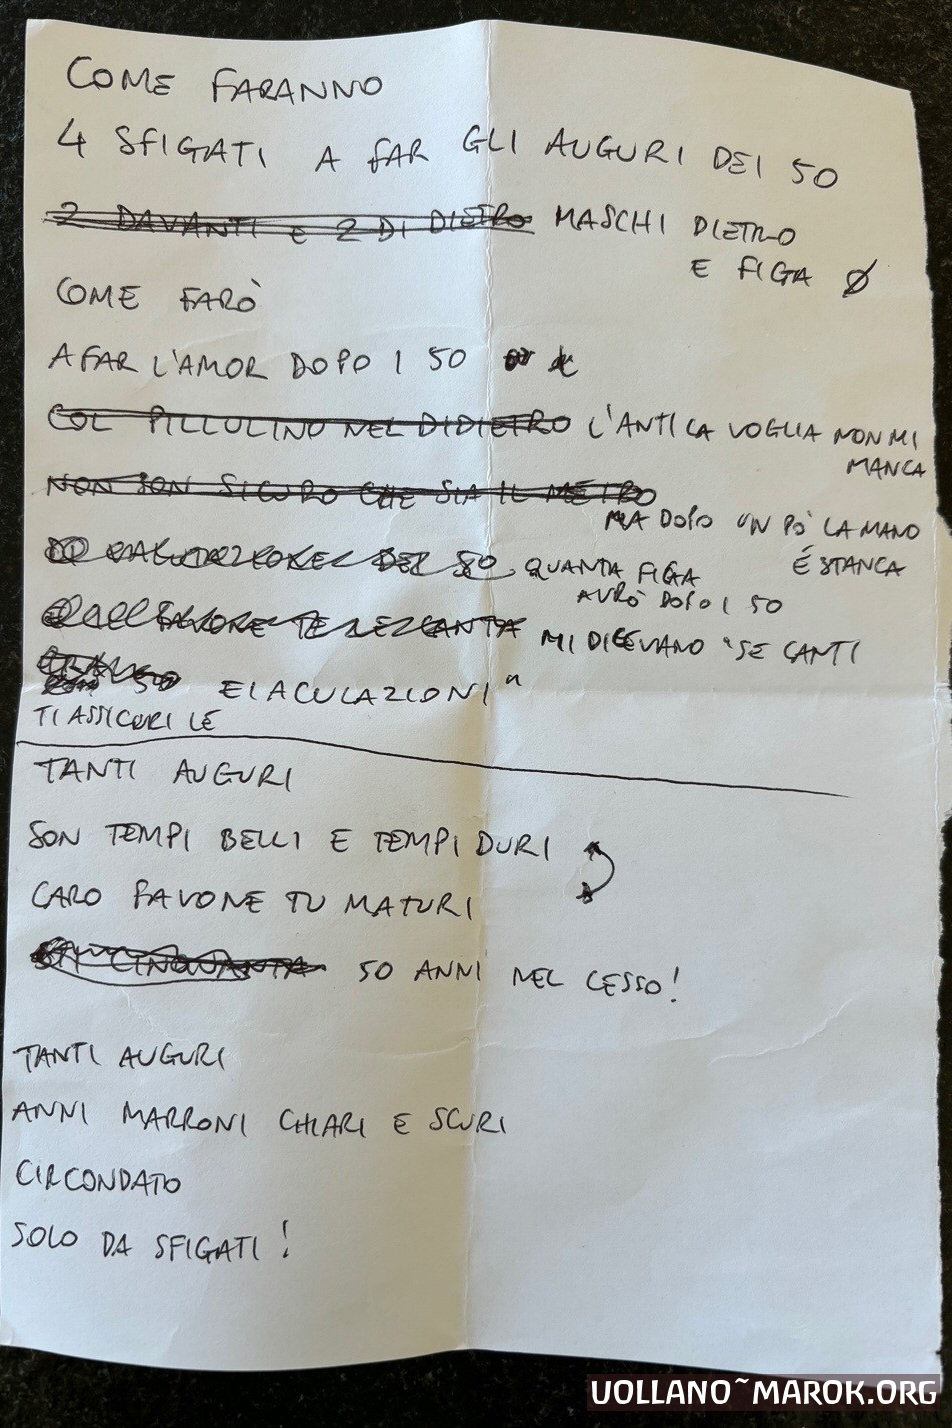 COME FARANNO
4 SFIGATI A FAR GLI AUGURI DEI 50
2 DAVANTI E 2 DI DIETRO MASCHI DIETRO
E FIGA Ø
COME FARÒ
A FAR L'AMOR DOPO I 50
COL PILLOLINO NEL DIDIETRO L'ANTICA VOGLIA NON MI
MANCA
NON SON SICURO CHE SIA IL METRO
MA DOPO UN PÒ LA MANO
É STANCA
QUANTA FIGA
AVRÒ DOPO I 50
MI DICEVANO "SE CANTI
50 EIACULAZIONI"
TI ASSICURI LE
TANTI AUGURI
SON TEMPI BELLI E TEMPI DURI
CARO PAVONE TU MATURI
CINQUANTA 50 ANNI NEL CESSO!
TANTI AUGURI
ANNI MARRONI CHIARI E SCURI
CIRCONDATO
SOLO DA SFIGATI!
UOLLANO~MAROK.ORG